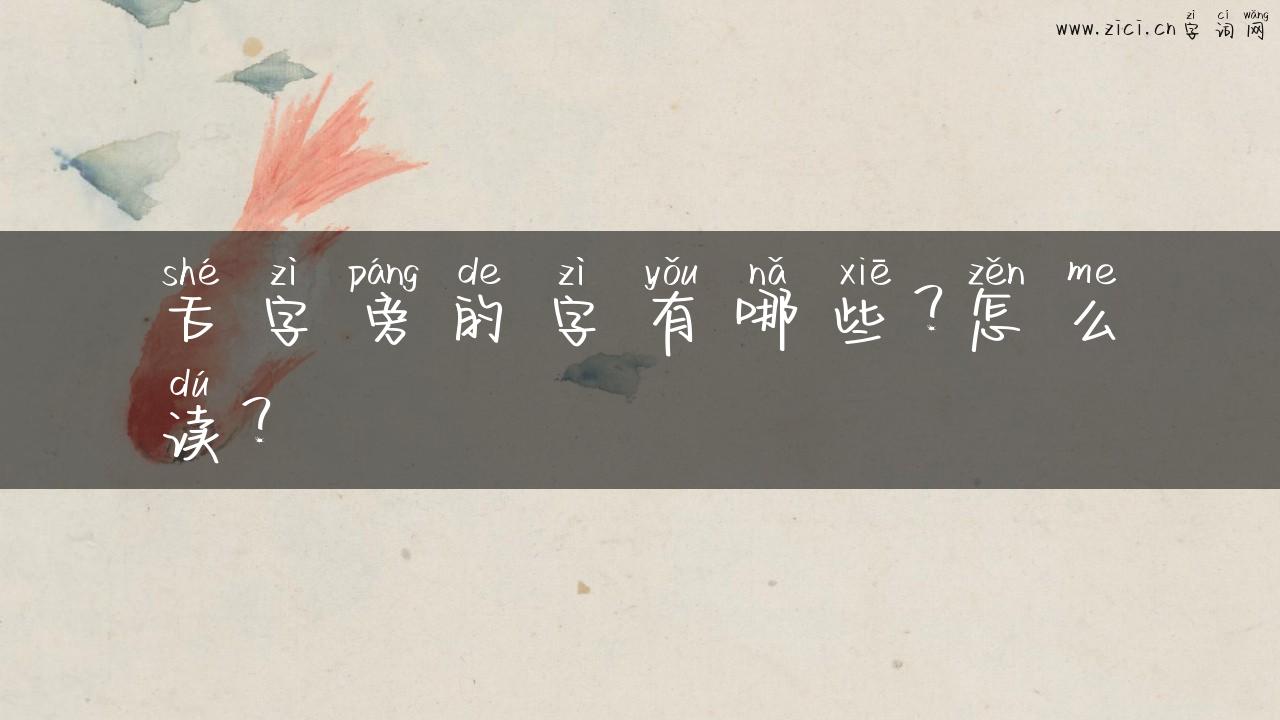 zì cí wǎng
www.zici.cn字词网
shé zì páng de zì yǒu nǎ xiē zěn me
舌字旁的字有哪些？怎么
dú
读？